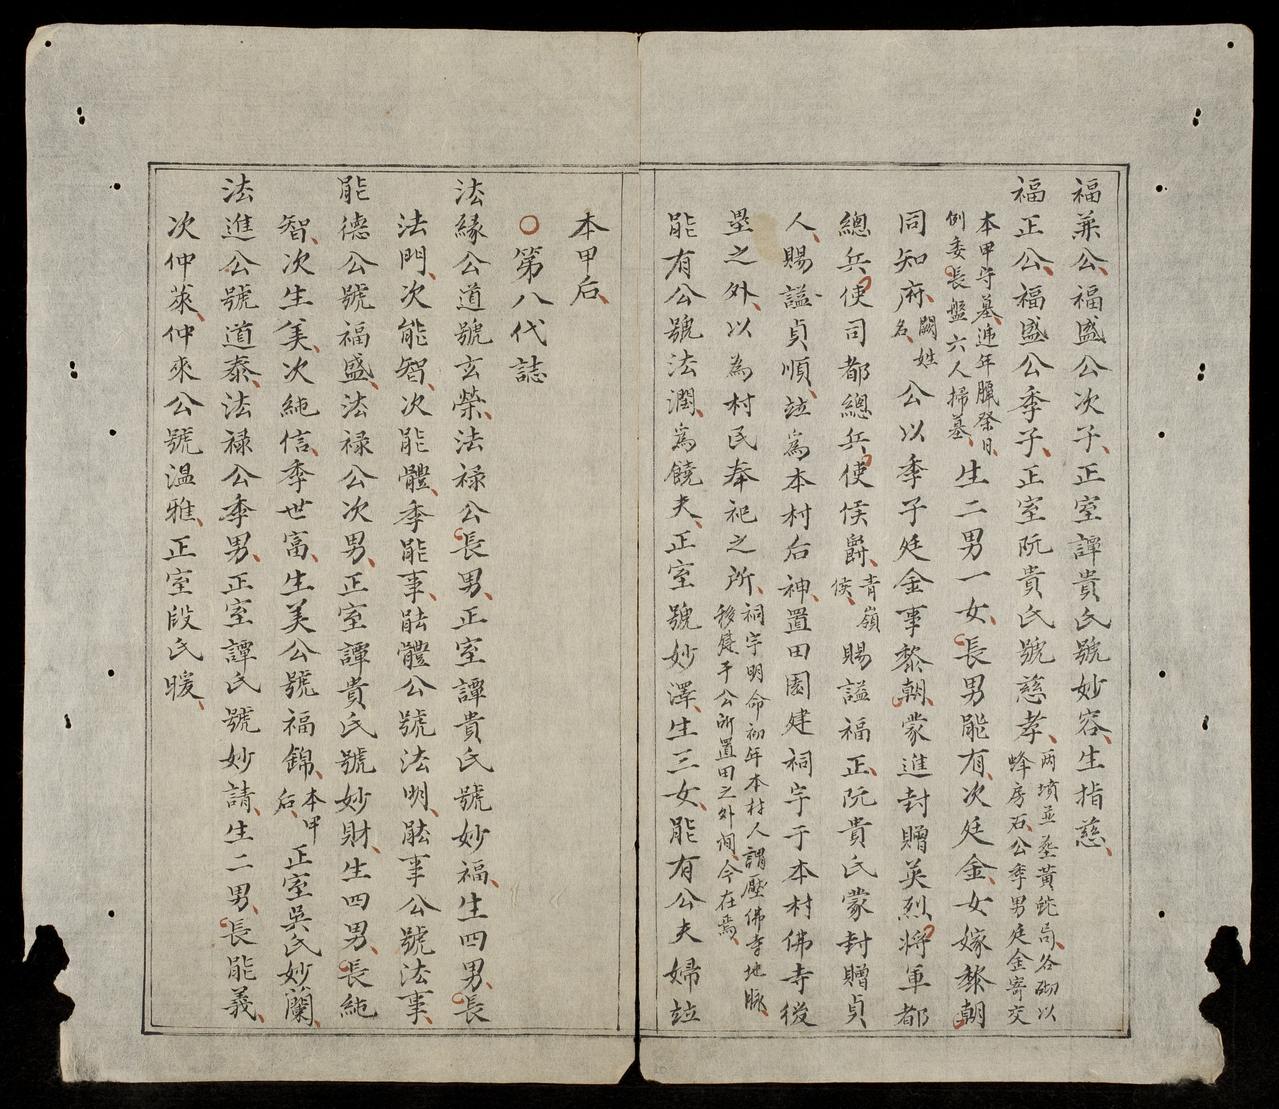 福菓公福盛公次子正室譚貴氏號妙容生指慈
福正公福盛公季子正室阮貴氏號慈孝兩墳並塟黃蛇局各砌以蜂房石公季男廷金寄交
本甲守墓遞年臘祭日例委長盤六人掃墓生二男一女長男能有次廷金女嫁黎朝
同知府闕姓名公以季子廷金事黎朝蒙進封贈英烈將軍都
總兵使司都總兵使侯爵青嶺侯賜謚福正阮貴氏蒙封贈貞
人賜謚貞順竝爲本村后神置田園建祠宇于本村佛寺後
壘之外以為村民奉祀之所祠宇明命初年本村人謂壓佛寺地脉移建于公所置田之外間今在焉
能有公號法潤爲饒夫正室號妙澤生三女能有公夫婦竝
本甲后
○第八代誌
法緣公道號玄榮法祿公長男正室譚貴氏號妙福生四男長
法門次能智次能體季能事能體公號法明能事公號法事
能德公號福盛法祿公次男正室譚貴氏號妙財生四男長純
智次生美次純信季世富生美公號福錦本甲后正室吳氏妙蘭
法進公號道泰法祿公季男正室譚氏號妙請生二男長能義
次仲萊仲來公號温雅正室段氏暖